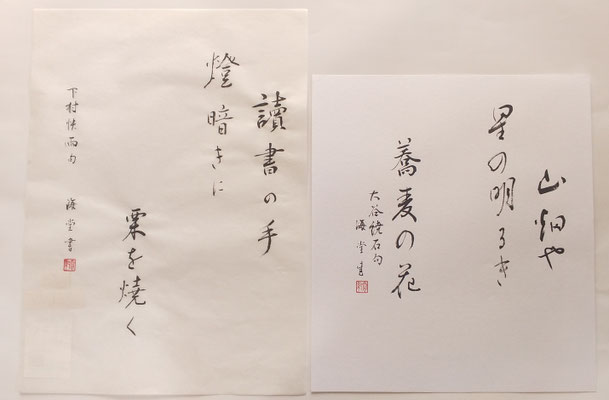 山畑や
星の明るき
蕎麦の花
大谷繞石句
海堂書
讀書の手
燈暗きに
栗を燒く
下村快雨句 海堂書